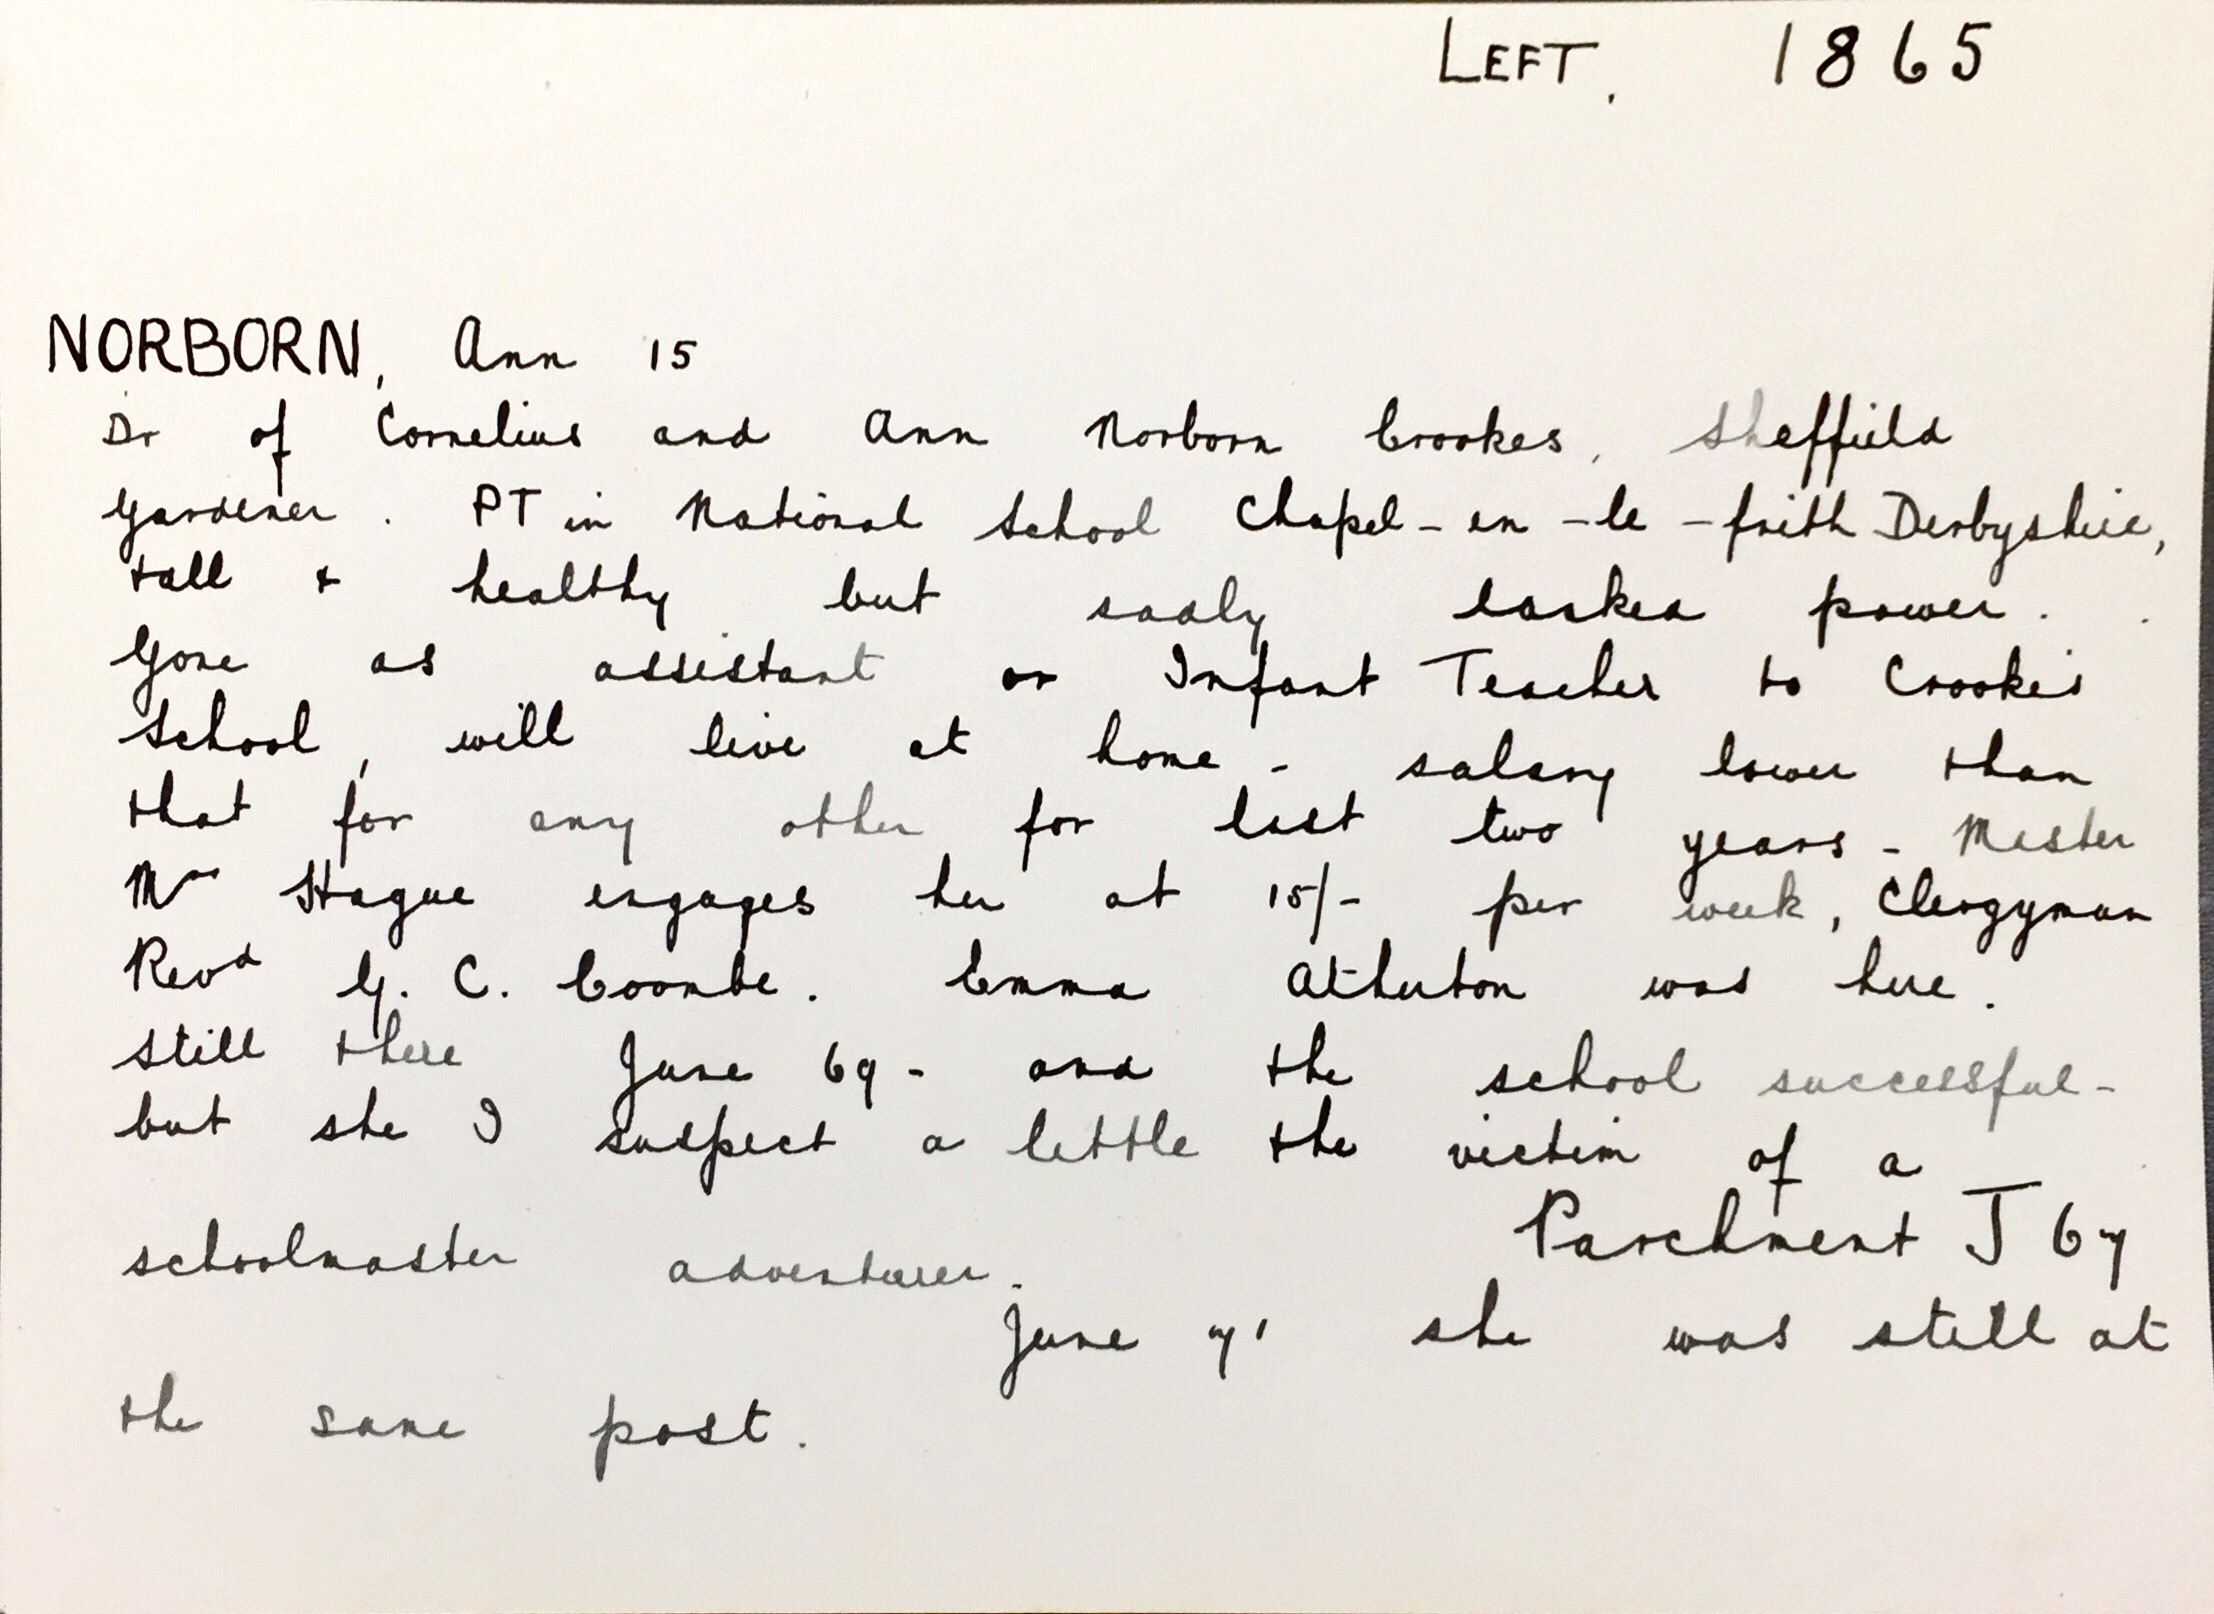 LEFT. 1865
NORBORN, Ann 15
Dr of Cornelius and Ann Norborn Crookes, Sheffield
Gardener. PT in National School Chapel-en-le-frith Derbyshire,
tall & healthy but sadly lacked power.
Gone as assistant or Infant Teacher to Crookes
School, will live at home - salary lower than
that for any other for last two years - Master
Mr Hague engages her at 15/- per week, Clergyman
Revd G. C. Coombe. Emma Atherton was here.
Still there June 69 - and the school successful -
but she I suspect a little the victim of a
schoolmaster adventurer. Parchment J 67
June 71 she was still at
the same post.